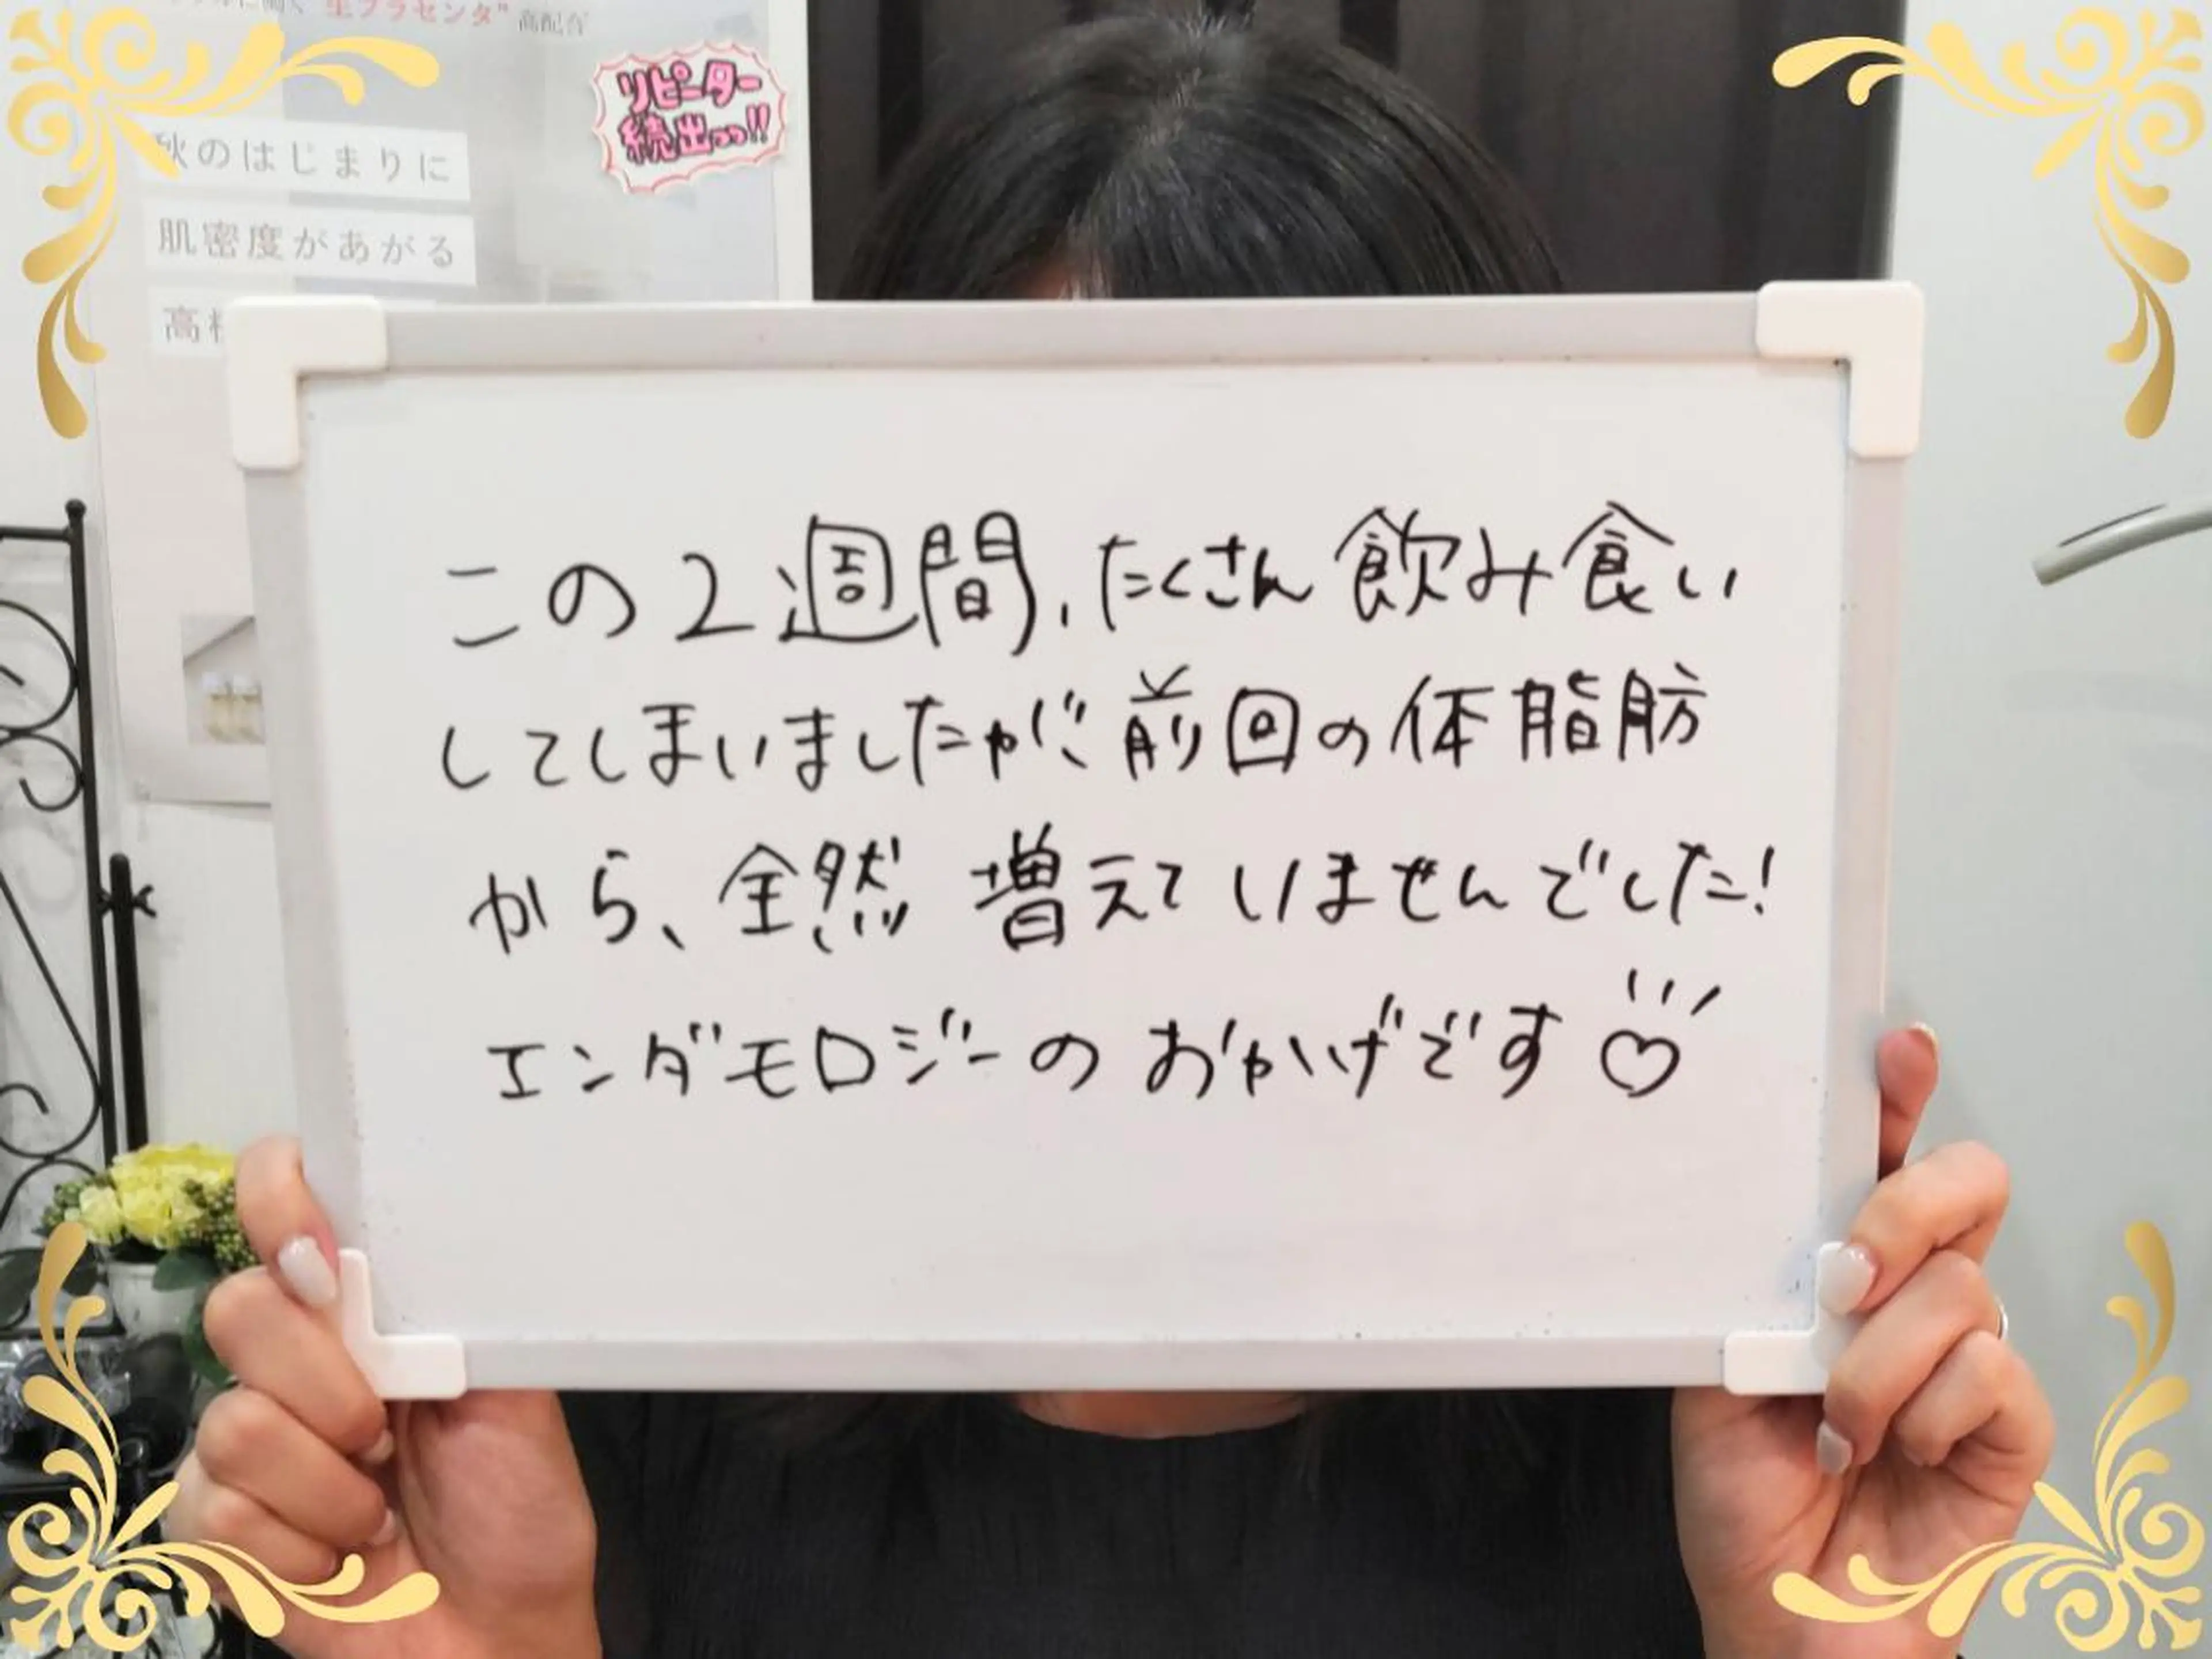 生プラセンタ" 高配合
リピーター
続出っっ!!
秋のはじまりに
肌密度があがる
高
この2週間、たくさん飲み食い
してしまいましたが前回の体脂肪
から、全然 増えていませんでした!
エンダモロジーのおかげです♡